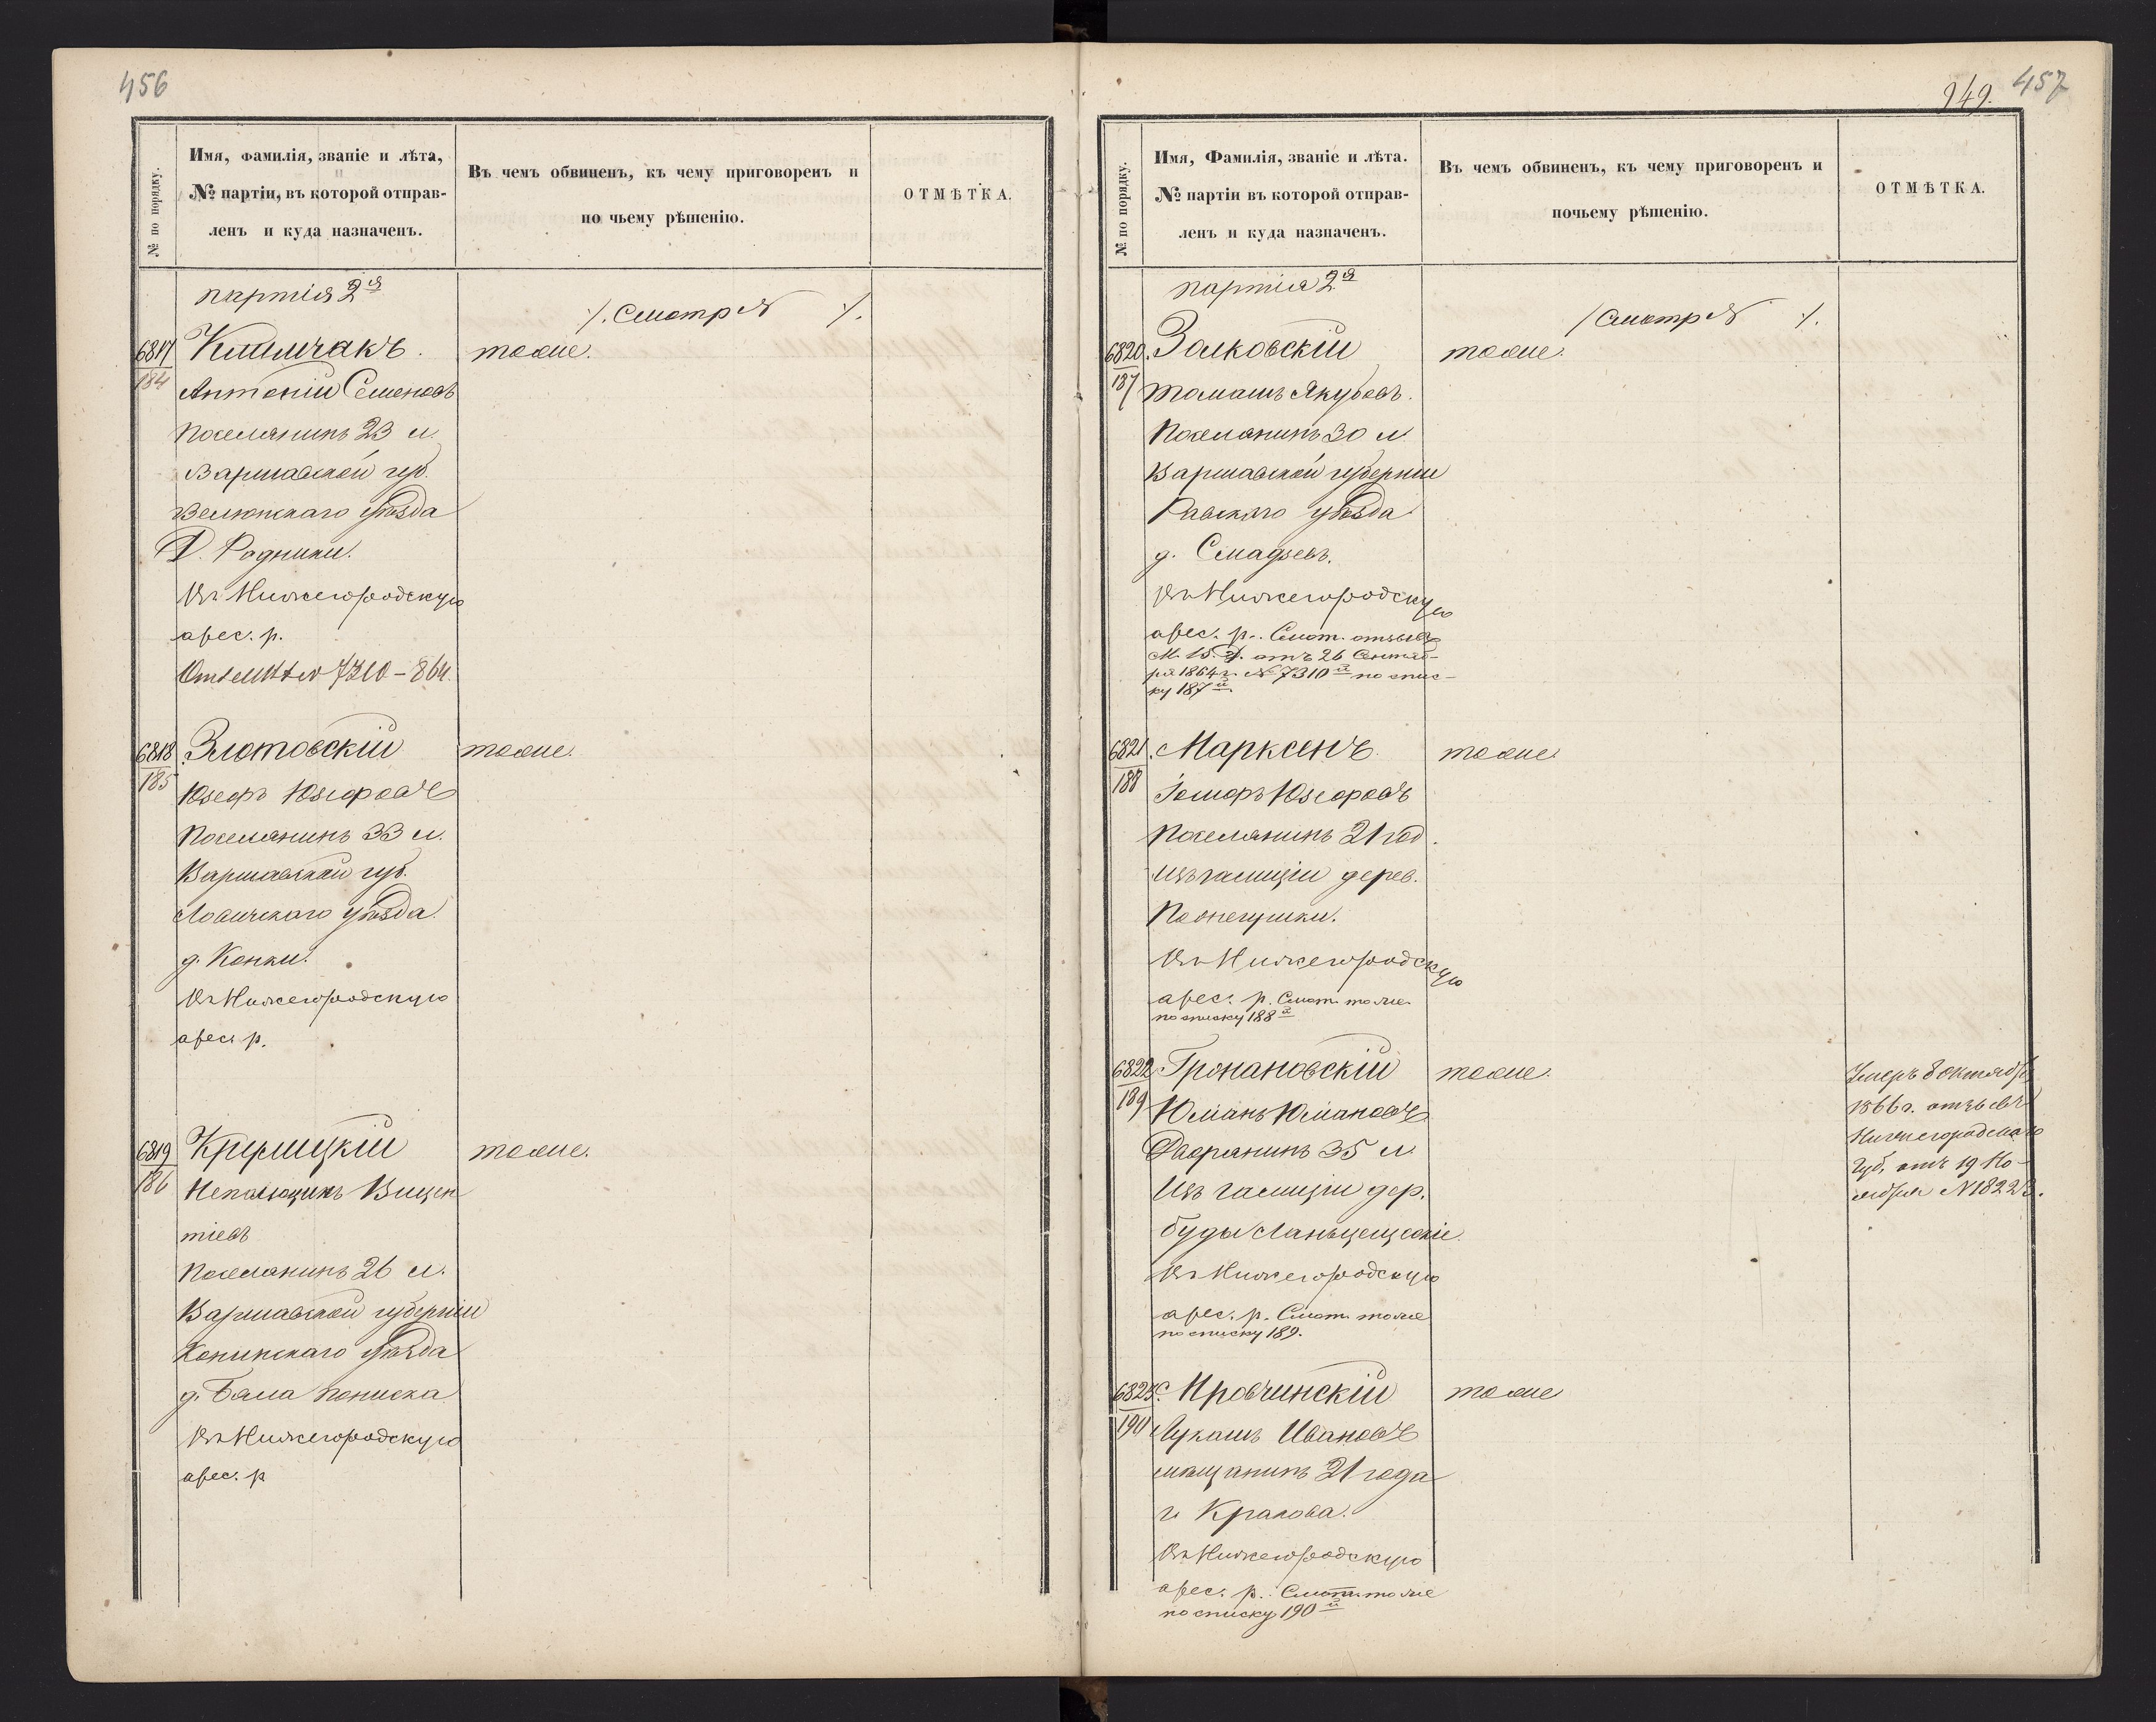 456
№ по порядку.
Имя, фамилія, званіе и лѣта,
№ партіи, въ которой отправ-
ленъ и куда назначенъ.
Въ чемъ обвиненъ, къ чему приговоренъ и
по чьему рѣшенію.
ОТМѢТКА.
партія 2я
/. Смотр № /.
6817
184
Климчакъ.
тоже.
Антоній Семеновъ
Поселянинъ 23 л.
Варшавской губ.
Велюнскаго уѣзда
Д. Родники.
Въ Нижегородскую
арес. р.
№ 7310-864.
6818
185
Злотовскій
тоже.
Юзефъ Юзефовъ
Поселянинъ 33 л.
Варшавской губ.
Ловичскаго уѣзда.
д. Конки.
Въ Нижегородскую
арес. р.
6819
186
тоже.
Вицен
тіевъ
Поселянинъ 26 л.
Варшавской губерніи
Конинскаго уѣзда
д. Бяла
Въ Нижегородскую
арес. р
949. 457
№ по порядку.
Имя, Фамилія, званіе и лѣта.
№ партіи въ которой отправ-
ленъ и куда назначенъ.
Въ чемъ обвиненъ, къ чему приговоренъ и
почьему рѣшенію.
ОТМѢТКА.
партія 2я
/ Смотр № /.
6820.
187
Залковскій
тоже.
Томашъ Якубовъ.
Поселянинъ 30 л.
Варшавской губерніи
Равскаго уѣзда
д.
Въ Нижегородскую
арес. р. Смот. отзывъ
М. В. Д. отъ 26 Сентяб-
ря 1864 г. № 7310 й по спис-
ку 187 й.
6821.
188
Марксенъ.
тоже.
Юзефовъ
Поселянинъ 21 год.
Изъ галиціи дерев.
Въ Нижегородскую
арес. р. Смот. тоже
по списку 188 й
6822
189
Гронановскій
тоже.
Юліанъ Юліановъ
Дворянинъ 35 л.
Изъ галиціи дер.
буды
Въ Нижегородскую
арес. р. Смот. тоже
по списку 189.
Умеръ 8 октября
1866 г. отзывъ
Нижегородскаго
Губ. отъ 19 Но-
ября № 18223.
6823
190
Кровчинскій
тоже
Лукашъ Ивановъ
мѣщанинъ 21 года
г. Кракова.
Въ Нижегородскую
арес. р. Смот. тоже
по списку 190 й